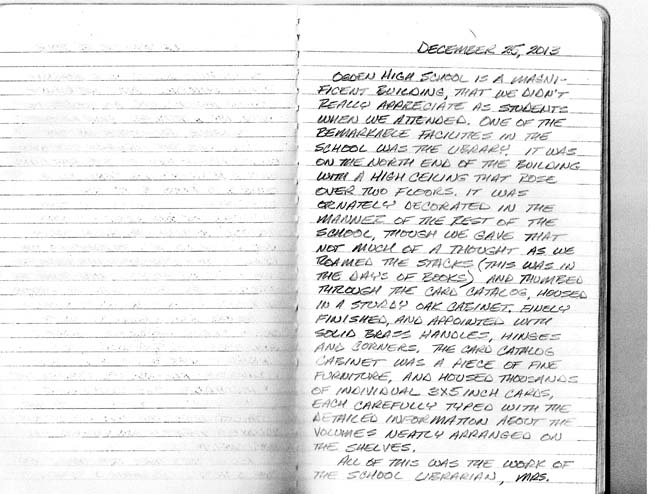 DECEMBER 25, 2013
OGDEN HIGH SCHOOL IS A MAGNI-
FICENT BUILDING, THAT WE DIDN'T
REALLY APPRECIATE AS STUDENTS
WHEN WE ATTENDED. ONE OF THE
REMARKABLE FACILITIES IN THE
SCHOOL WAS THE LIBRARY. IT WAS
ON THE NORTH END OF THE BUILDING
WITH A HIGH CEILING THAT ROSE
OVER TWO FLOORS. IT WAS
ORNATELY DECORATED IN THE
MANNER OF THE REST OF THE
SCHOOL, THOUGH WE GAVE THAT
NOT MUCH OF A THOUGHT AS WE
ROAMED THE STACKS (THIS WAS IN
THE DAYS OF BOOKS) AND THUMBED
THROUGH THE CARD CATALOG, HOUSED
IN A STURDY OAK CABINET, FINELY
FINISHED, AND APPOINTED WITH
SOLID BRASS HANDLES, HINGES
AND CORNERS. THE CARD CATALOG
CABINET WAS A PIECE OF FINE
FURNITURE, AND HOUSED THOUSANDS
OF INDIVIDUAL 3X5 INCH CARDS,
EACH CAREFULLY TYPED WITH THE
DETAILED INFORMATION ABOUT THE
VOLUMES NEATLY ARRANGED ON
THE SHELVES.
ALL OF THIS WAS THE WORK OF
THE SCHOOL LIBRARIAN, MRS.